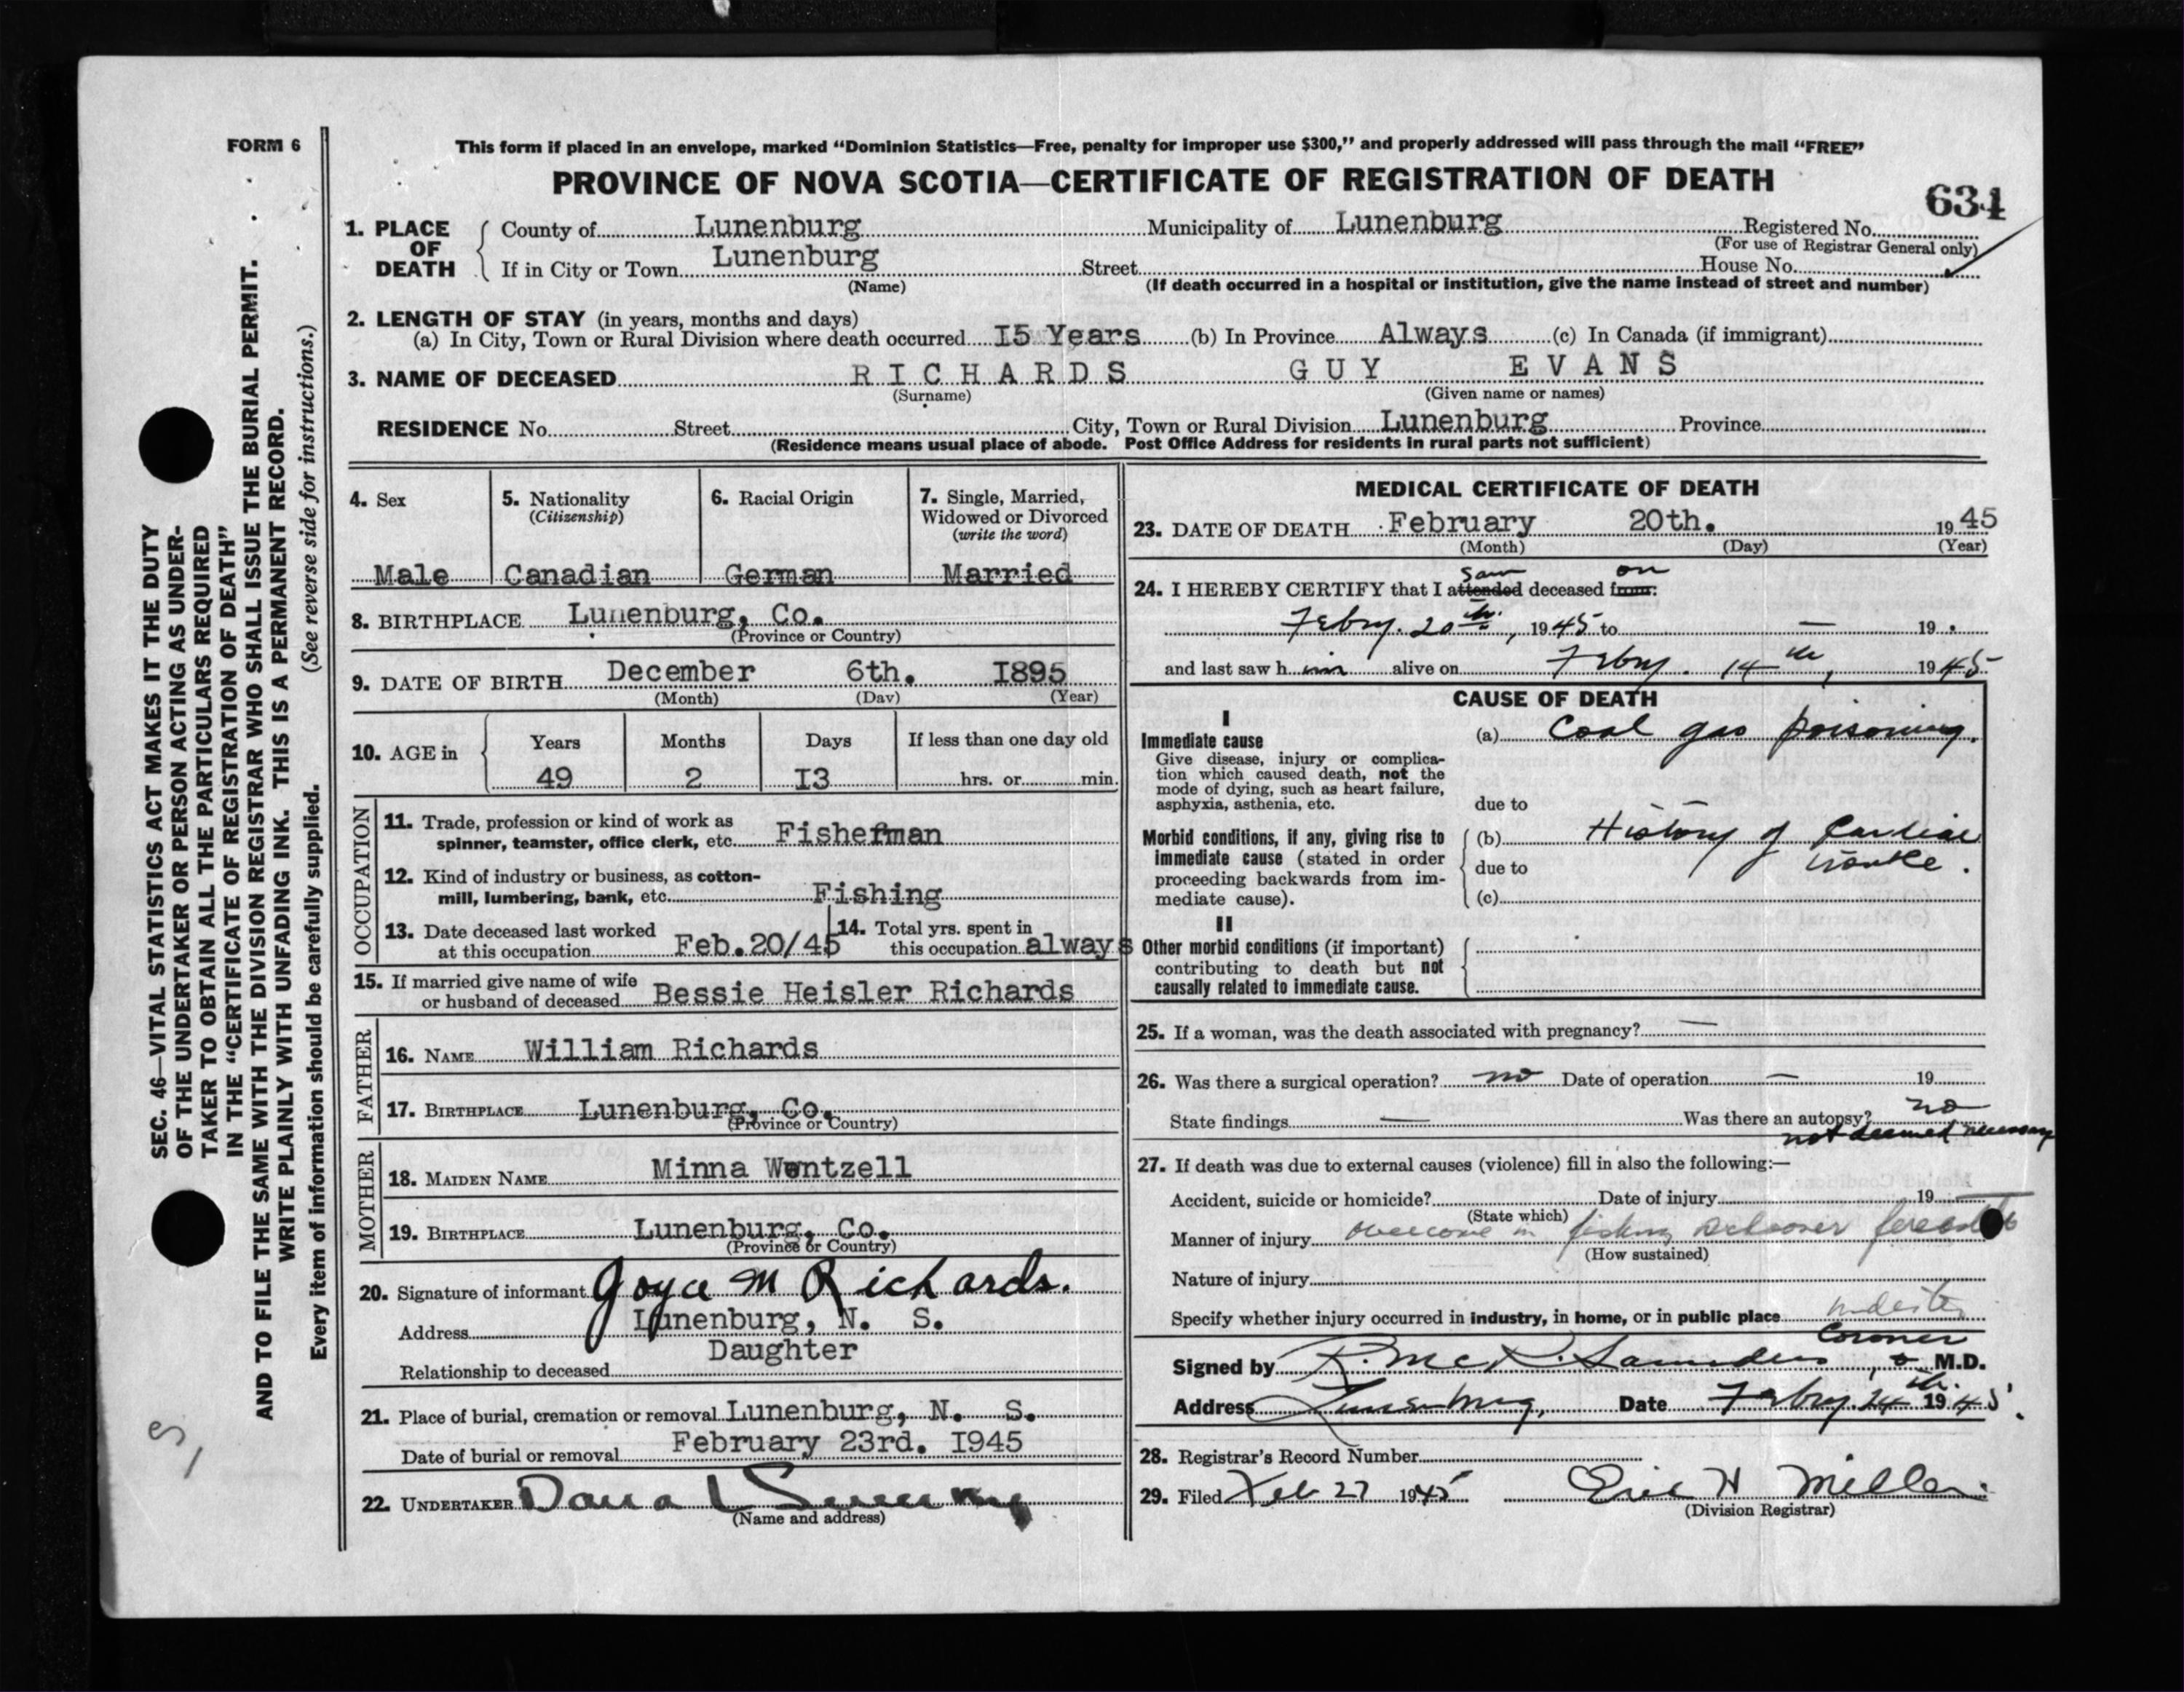 FORM 6
This form if placed in an envelope, marked “Dominion Statistics—Free, penalty for improper use $300,” and properly addressed will pass through the mail “FREE”
PROVINCE OF NOVA SCOTIA—CERTIFICATE OF REGISTRATION OF DEATH
634
1. PLACE OF DEATH { County of Lunenburg Municipality of Lunenburg Registered No.
(For use of Registrar General only)
If in City or Town Lunenburg Street House No.
(Name) (If death occurred in a hospital or institution, give the name instead of street and number)
2. LENGTH OF STAY (in years, months and days)
(a) In City, Town or Rural Division where death occurred I5 Years (b) In Province Always (c) In Canada (if immigrant)
3. NAME OF DECEASED RICHARDS GUY EVANS
(Surname) (Given name or names)
RESIDENCE No. Street City, Town or Rural Division Lunenburg Province
(Residence means usual place of abode. Post Office Address for residents in rural parts not sufficient)
4. Sex
Male
5. Nationality
(Citizenship)
Canadian
6. Racial Origin
German
7. Single, Married,
Widowed or Divorced
(write the word)
Married
8. BIRTHPLACE Lunenburg, Co.
(Province or Country)
9. DATE OF BIRTH December 6th. I895
(Month) (Day) (Year)
10. AGE in { Years Months Days If less than one day old
49 2 I3 hrs. or min.
OCCUPATION
11. Trade, profession or kind of work as
spinner, teamster, office clerk, etc. Fisherman
12. Kind of industry or business, as cotton-
mill, lumbering, bank, etc. Fishing
13. Date deceased last worked
at this occupation Feb.20/45
14. Total yrs. spent in
this occupation always
15. If married give name of wife
or husband of deceased Bessie Heisler Richards
FATHER
16. NAME William Richards
17. BIRTHPLACE Lunenburg, Co.
(Province or Country)
MOTHER
18. MAIDEN NAME Minna Wentzell
19. BIRTHPLACE Lunenburg, Co.
(Province or Country)
20. Signature of informant Joyce M Richards.
Address Lunenburg, N. S.
Relationship to deceased Daughter
21. Place of burial, cremation or removal Lunenburg, N. S.
Date of burial or removal February 23rd. I945
22. UNDERTAKER Dana L Sweeny
(Name and address)
MEDICAL CERTIFICATE OF DEATH
23. DATE OF DEATH February 20th. 1945
(Month) (Day) (Year)
saw on
24. I HEREBY CERTIFY that I attended deceased from:
Febry. 20th, 1945 to — 19
and last saw him alive on Febry. 14th, 1945
CAUSE OF DEATH
I
Immediate cause
Give disease, injury or complica-
tion which caused death, not the
mode of dying, such as heart failure,
asphyxia, asthenia, etc.
(a) Coal gas poisoning.
due to
Morbid conditions, if any, giving rise to
immediate cause (stated in order
proceeding backwards from im-
mediate cause).
(b) History of Cardiac
due to
(c)
II
Other morbid conditions (if important)
contributing to death but not
causally related to immediate cause.
25. If a woman, was the death associated with pregnancy? —
26. Was there a surgical operation? no Date of operation — 19
State findings — Was there an autopsy? no
not deemed necessary
27. If death was due to external causes (violence) fill in also the following:—
Accident, suicide or homicide? Date of injury 19
(State which)
Manner of injury overcome in fishing schooner
(How sustained)
Nature of injury
Specify whether injury occurred in industry, in home, or in public place
Coroner
Signed by R. McK. Saunders, M.D.
Address Lunenburg, Date Febry. 24th. 1945.
28. Registrar's Record Number
29. Filed Feb 27 1945 Eric H Miller
(Division Registrar)
SEC. 46—VITAL STATISTICS ACT MAKES IT THE DUTY
OF THE UNDERTAKER OR PERSON ACTING AS UNDER-
TAKER TO OBTAIN ALL THE PARTICULARS REQUIRED
IN THE “CERTIFICATE OF REGISTRATION OF DEATH”
AND TO FILE THE SAME WITH THE DIVISION REGISTRAR WHO SHALL ISSUE THE BURIAL PERMIT.
WRITE PLAINLY WITH UNFADING INK. THIS IS A PERMANENT RECORD.
Every item of information should be carefully supplied. (See reverse side for instructions.)